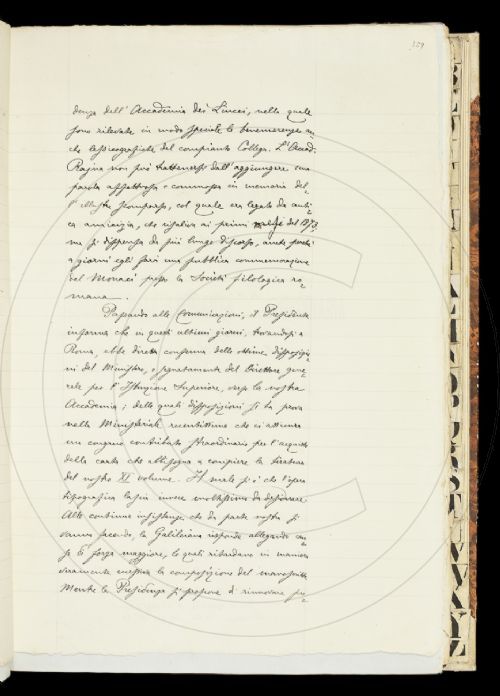 159
denza dell'Accademia dei Lincei, nella quale
sono rilevate in modo speciale le benemerenze an-
che lessicografiche del compianto Collega. L'Accad.
Rajna non può trattenersi dall'aggiungere una
parola affettuosa e commossa in memoria del-
l'illustre scomparso, col quale era legato da anti-
ca amicizia, che risaliva ai primi del 1873,
ma si dispensa da più lungo discorso, anche perché
a giorni egli farà una pubblica commemorazione
del Monaci presso la Società filologica ro-
mana.
Passando alle Comunicazioni, il Presidente
informa che in questi ultimi giorni, trovandosi a
Roma, ebbe diretta conferma delle ottime disposizio-
ni del Ministero, e segnatamente del Direttore gene-
rale per l'Istruzione Superiore, verso la nostra
Accademia; delle quali disposizioni si ha prova
nella Ministeriale recentissima che ci attesta
un congruo contributo straordinario per l'acquisto
della carta che abbisogna a compiere la tiratura
del nostro XI volume. Il male si è che l'opera
tipografica lascia invece moltissimo da desiderare.
Alle continue insistenze, che da parte nostra si
vanno facendo, la Galileiana risponde allegando cau-
se di forza maggiore, le quali ritardano in maniera
veramente la composizione del manoscritto.
Mentre la Presidenza si propone di rinnovare